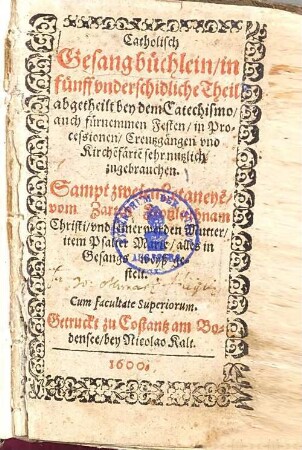 Catholisch
Gesangbüchlein/in
fünff vnderschidliche Theil
abgetheilt bey dem Catechismo/
auch fürnemmen Festen/in Pro-
cessionen/Creutzgängen vnd
Kirchẽfärtẽ sehr nutzlich
zugebrauchen.
Sampt zweyen Letaneyẽ/
vom Zarten
Christi/vnd seiner werden Mutter/
item Psalter Marie/alles in
Gesangs
stelt.
Cum facultate Superiorum.
Getruckt zu Costantz am Bo-
densee/bey Nicolao Kalt.
1600.